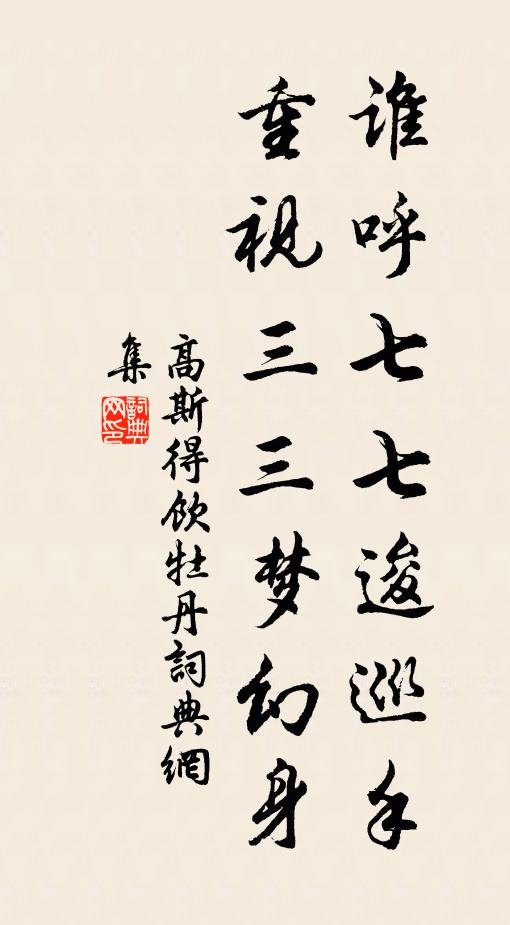 谁呼七七逡巡手
重视三三梦幻身
高斯得饮牡丹詞典網
集
詞典网印